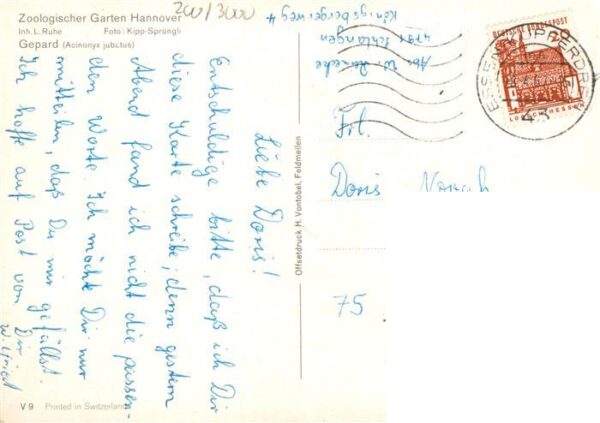 Zoologischer Garten Hannover
Inh. L. Ruhe Foto: Kipp-Sprüngli
Gepard (Acinonyx jubatus)
200/3000
Liebe Doris!
Entschuldige bitte, daß ich Dir
diese Karte schreibe, denn gestern
Abend fand ich nicht die passen-
den Worte. Ich möchte Dir nur
mitteilen, daß Du mir gefällst.
Ich hoffe auf Post von Dir
V 9 Printed in Switzerland
Offsetdruck H. Vontobel, Feldmeilen
Abs. W.
4791 Schlangen
Königsbergerweg 4
DEUTSCHE BUNDESPOST
LORSCH HESSEN
ESSEN-KUPFERDREH
Frl.
Doris
75